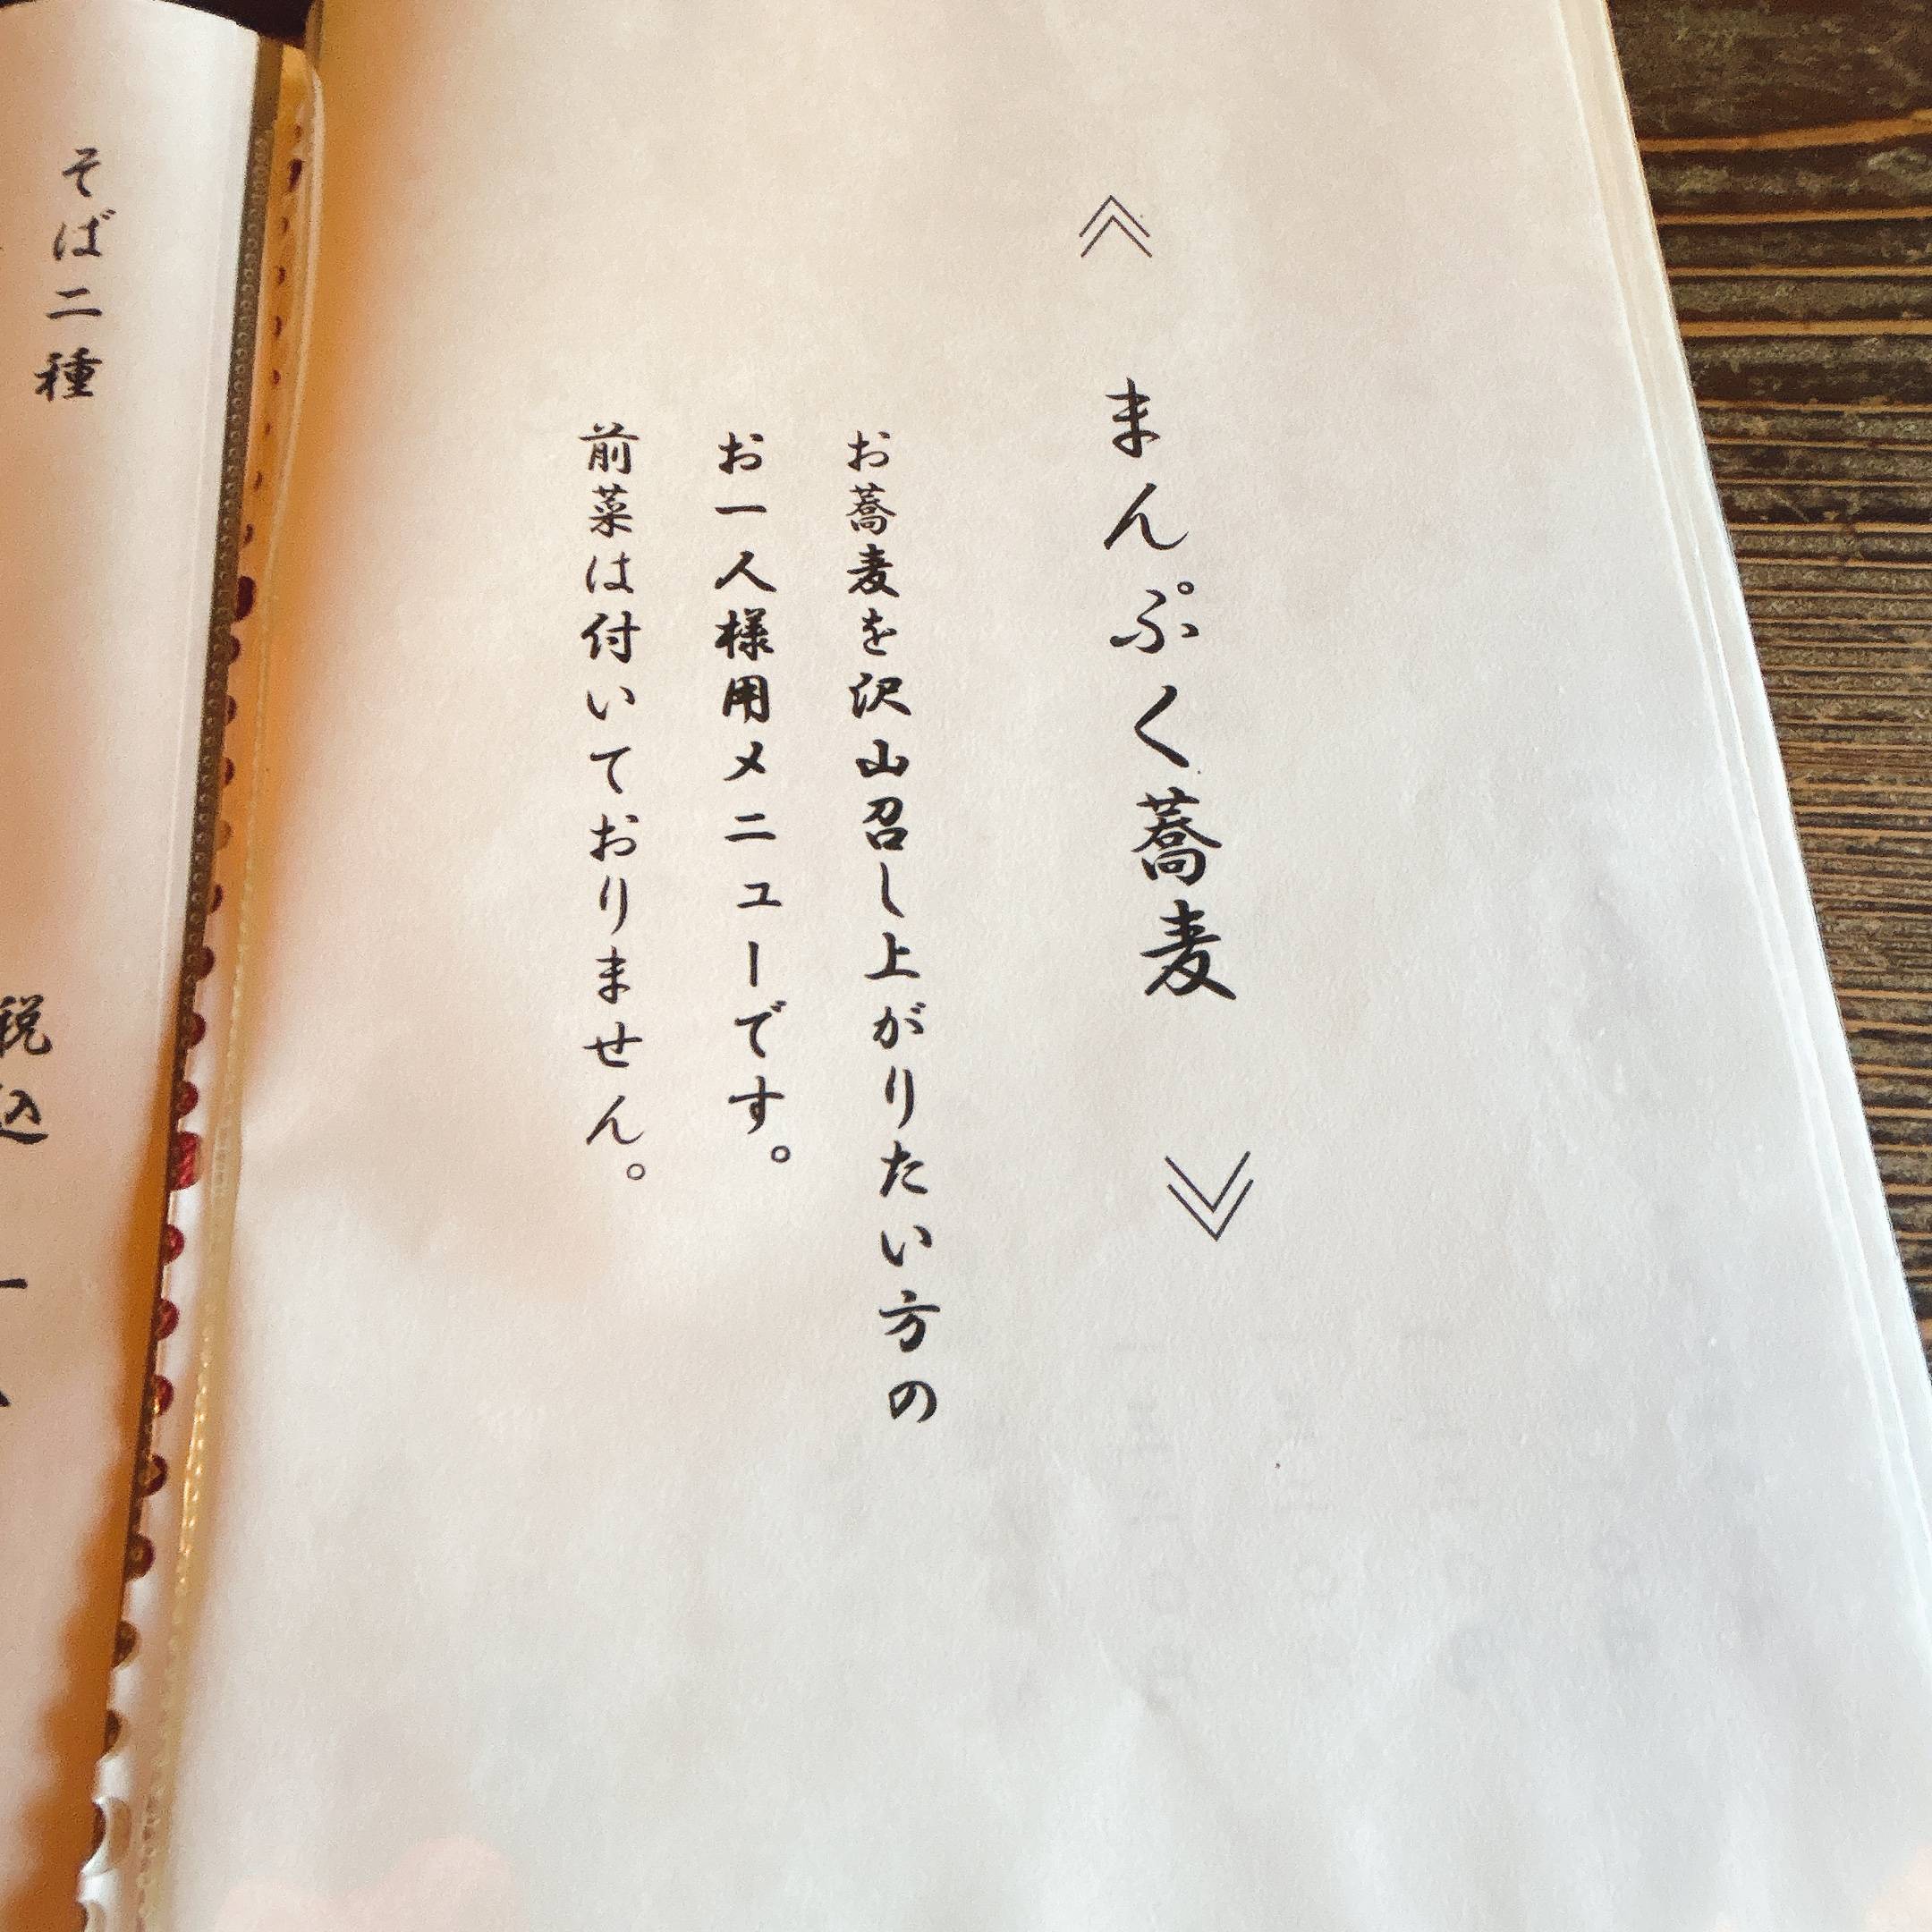 《 まんぷく蕎麦 》
お蕎麦を沢山召し上がりたい方の
お一人様用メニューです。
前菜は付いておりません。
そば二種
税込